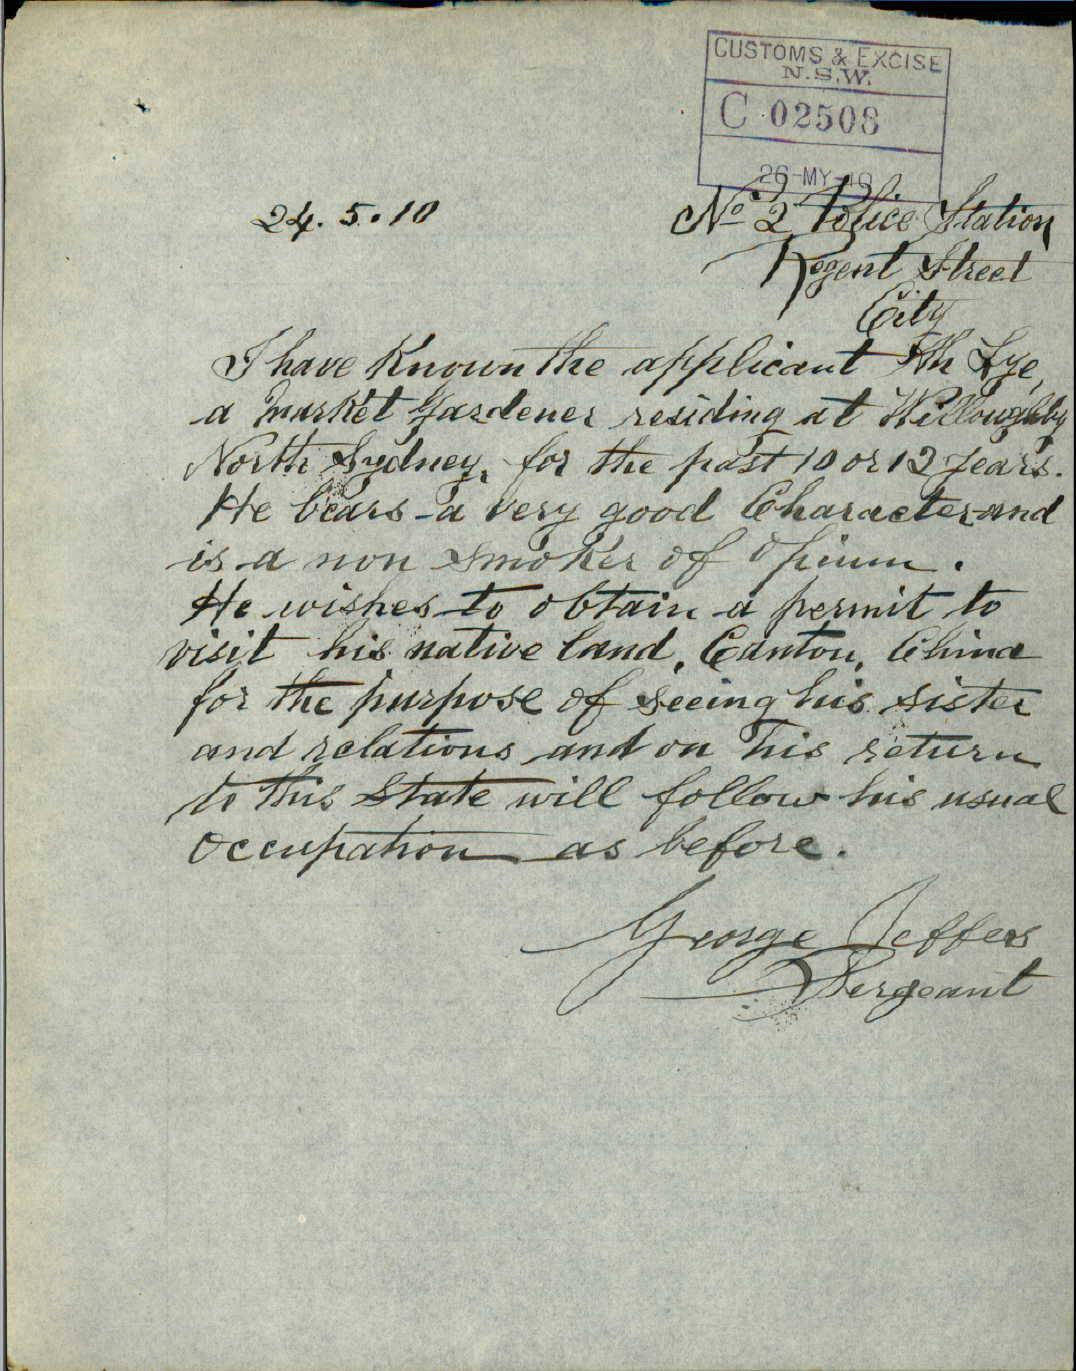 CUSTOMS & EXCISE
N.S.W.
C 02508
26 MY 10
24.5.10
No 2 Police Station
Regent Street
City
I have known the applicant Ah Lye,
a Market Gardener residing at Willoughby
North Sydney, for the past 10 or 12 years.
He bears a very good Character and
is a non smoker of Opium.
He wishes to obtain a permit to
visit his native land, Canton, China
for the purpose of seeing his sister
and relations and on his return
to this State will follow his usual
Occupation as before.
George Jeffers
Sergeant